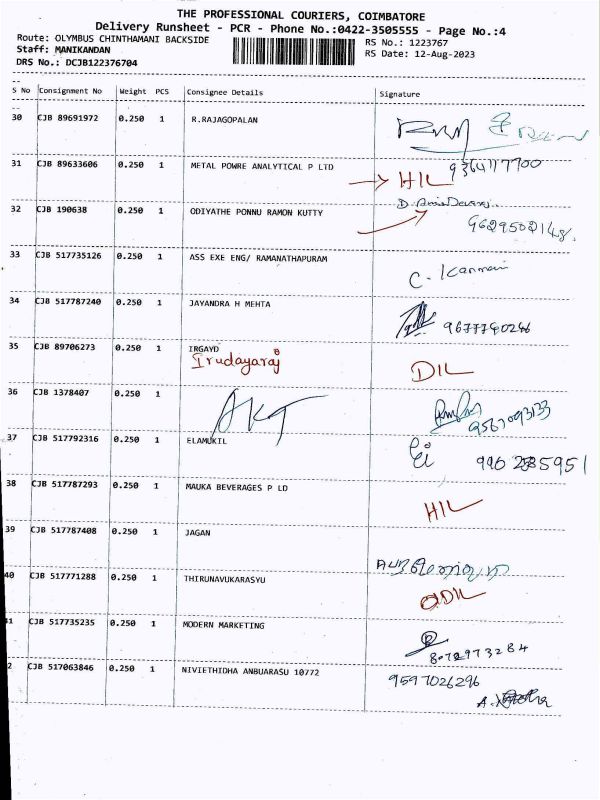 THE PROFESSIONAL COURIERS, COIMBATORE
Delivery Runsheet - PCR - Phone No.:0422-3505555 - Page No.:4
Route: OLYMBUS CHINTHAMANI BACKSIDE RS No.: 1223767
Staff: MANIKANDAN RS Date: 12-Aug-2023
DRS No.: DCJB122376704
S No Consignment No Weight PCS Consignee Details Signature
30 CJB 89691972 0.250 1 R.RAJAGOPALAN
9364117700
31 CJB 89633606 0.250 1 METAL POWRE ANALYTICAL P LTD HIL
32 CJB 190638 0.250 1 ODIYATHE PONNU RAMON KUTTY
9629502148
33 CJB 517735126 0.250 1 ASS EXE ENG/ RAMANATHAPURAM
34 CJB 517787240 0.250 1 JAYANDRA H MEHTA
9677790246
35 CJB 89706273 0.250 1 IRGAYD
Irudayaraj DIL
36 CJB 1378407 0.250 1 AKT
9567093133
37 CJB 517792316 0.250 1 ELAMUKIL
38 CJB 517787293 0.250 1 MAUKA BEVERAGES P LD HIL
39 CJB 517787408 0.250 1 JAGAN
40 CJB 517771288 0.250 1 THIRUNAVUKARASYU DIL
41 CJB 517735235 0.250 1 MODERN MARKETING
8072973284
2 CJB 517063846 0.250 1 NIVIETHIDHA ANBUARASU 10772 9597026296